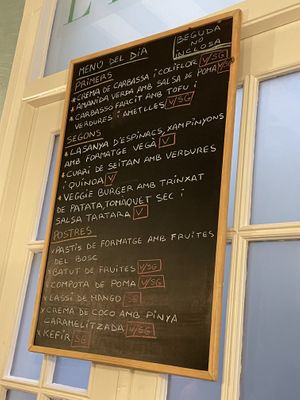 MENÚ DEL DIA
BEGUDA
NO
INCLOSA
PRIMERS
* CREMA DE CARBASSA I COLIFLOR V/SG
* AMANIDA VERDA AMB SALSA DE POMA V/SG
* CARBASSO FARCIT AMB TOFU I
VERDURES I AMETLLES V/SG
SEGONS
* LASANYA D'ESPINACS, XAMPINYONS
AMB FORMATGE VEGÀ V
* CURRI DE SEITAN AMB VERDURES
I QUINOA V
* VEGGIE BURGER AMB TRINXAT
DE PATATA, TOMÀQUET SEC I
SALSA TARTARA V
POSTRES
* PASTIS DE FORMATGE AMB FRUITES
DEL BOSC
* BATUT DE FRUITES V/SG
* COMPOTA DE POMA V/SG
* LASSI DE MANGO SG
* CREMA DE COCO AMB PINYA
CARAMELITZADA V/SG
* KEFIR SG